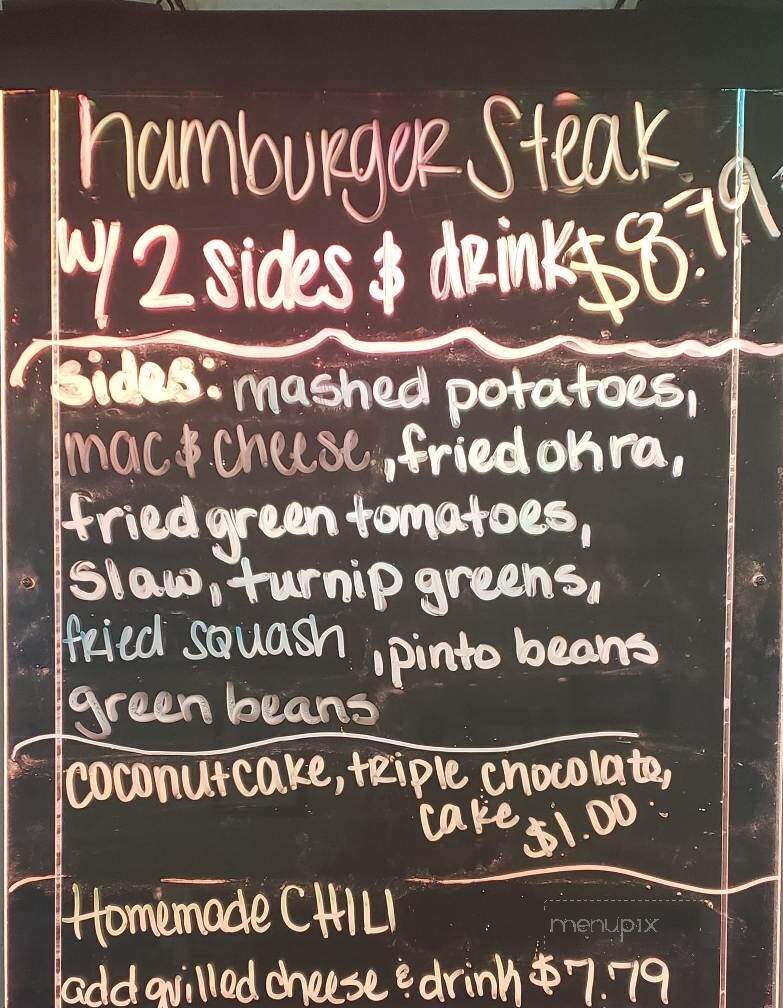 hamburger Steak
w/ 2 sides & drink $8.79
sides: mashed potatoes,
mac & cheese, fried okra,
fried green tomatoes,
Slaw, turnip greens,
fried squash, pinto beans
green beans
coconut cake, triple chocolate,
cake $1.00
Homemade CHILI
menupix
add grilled cheese & drink $7.79